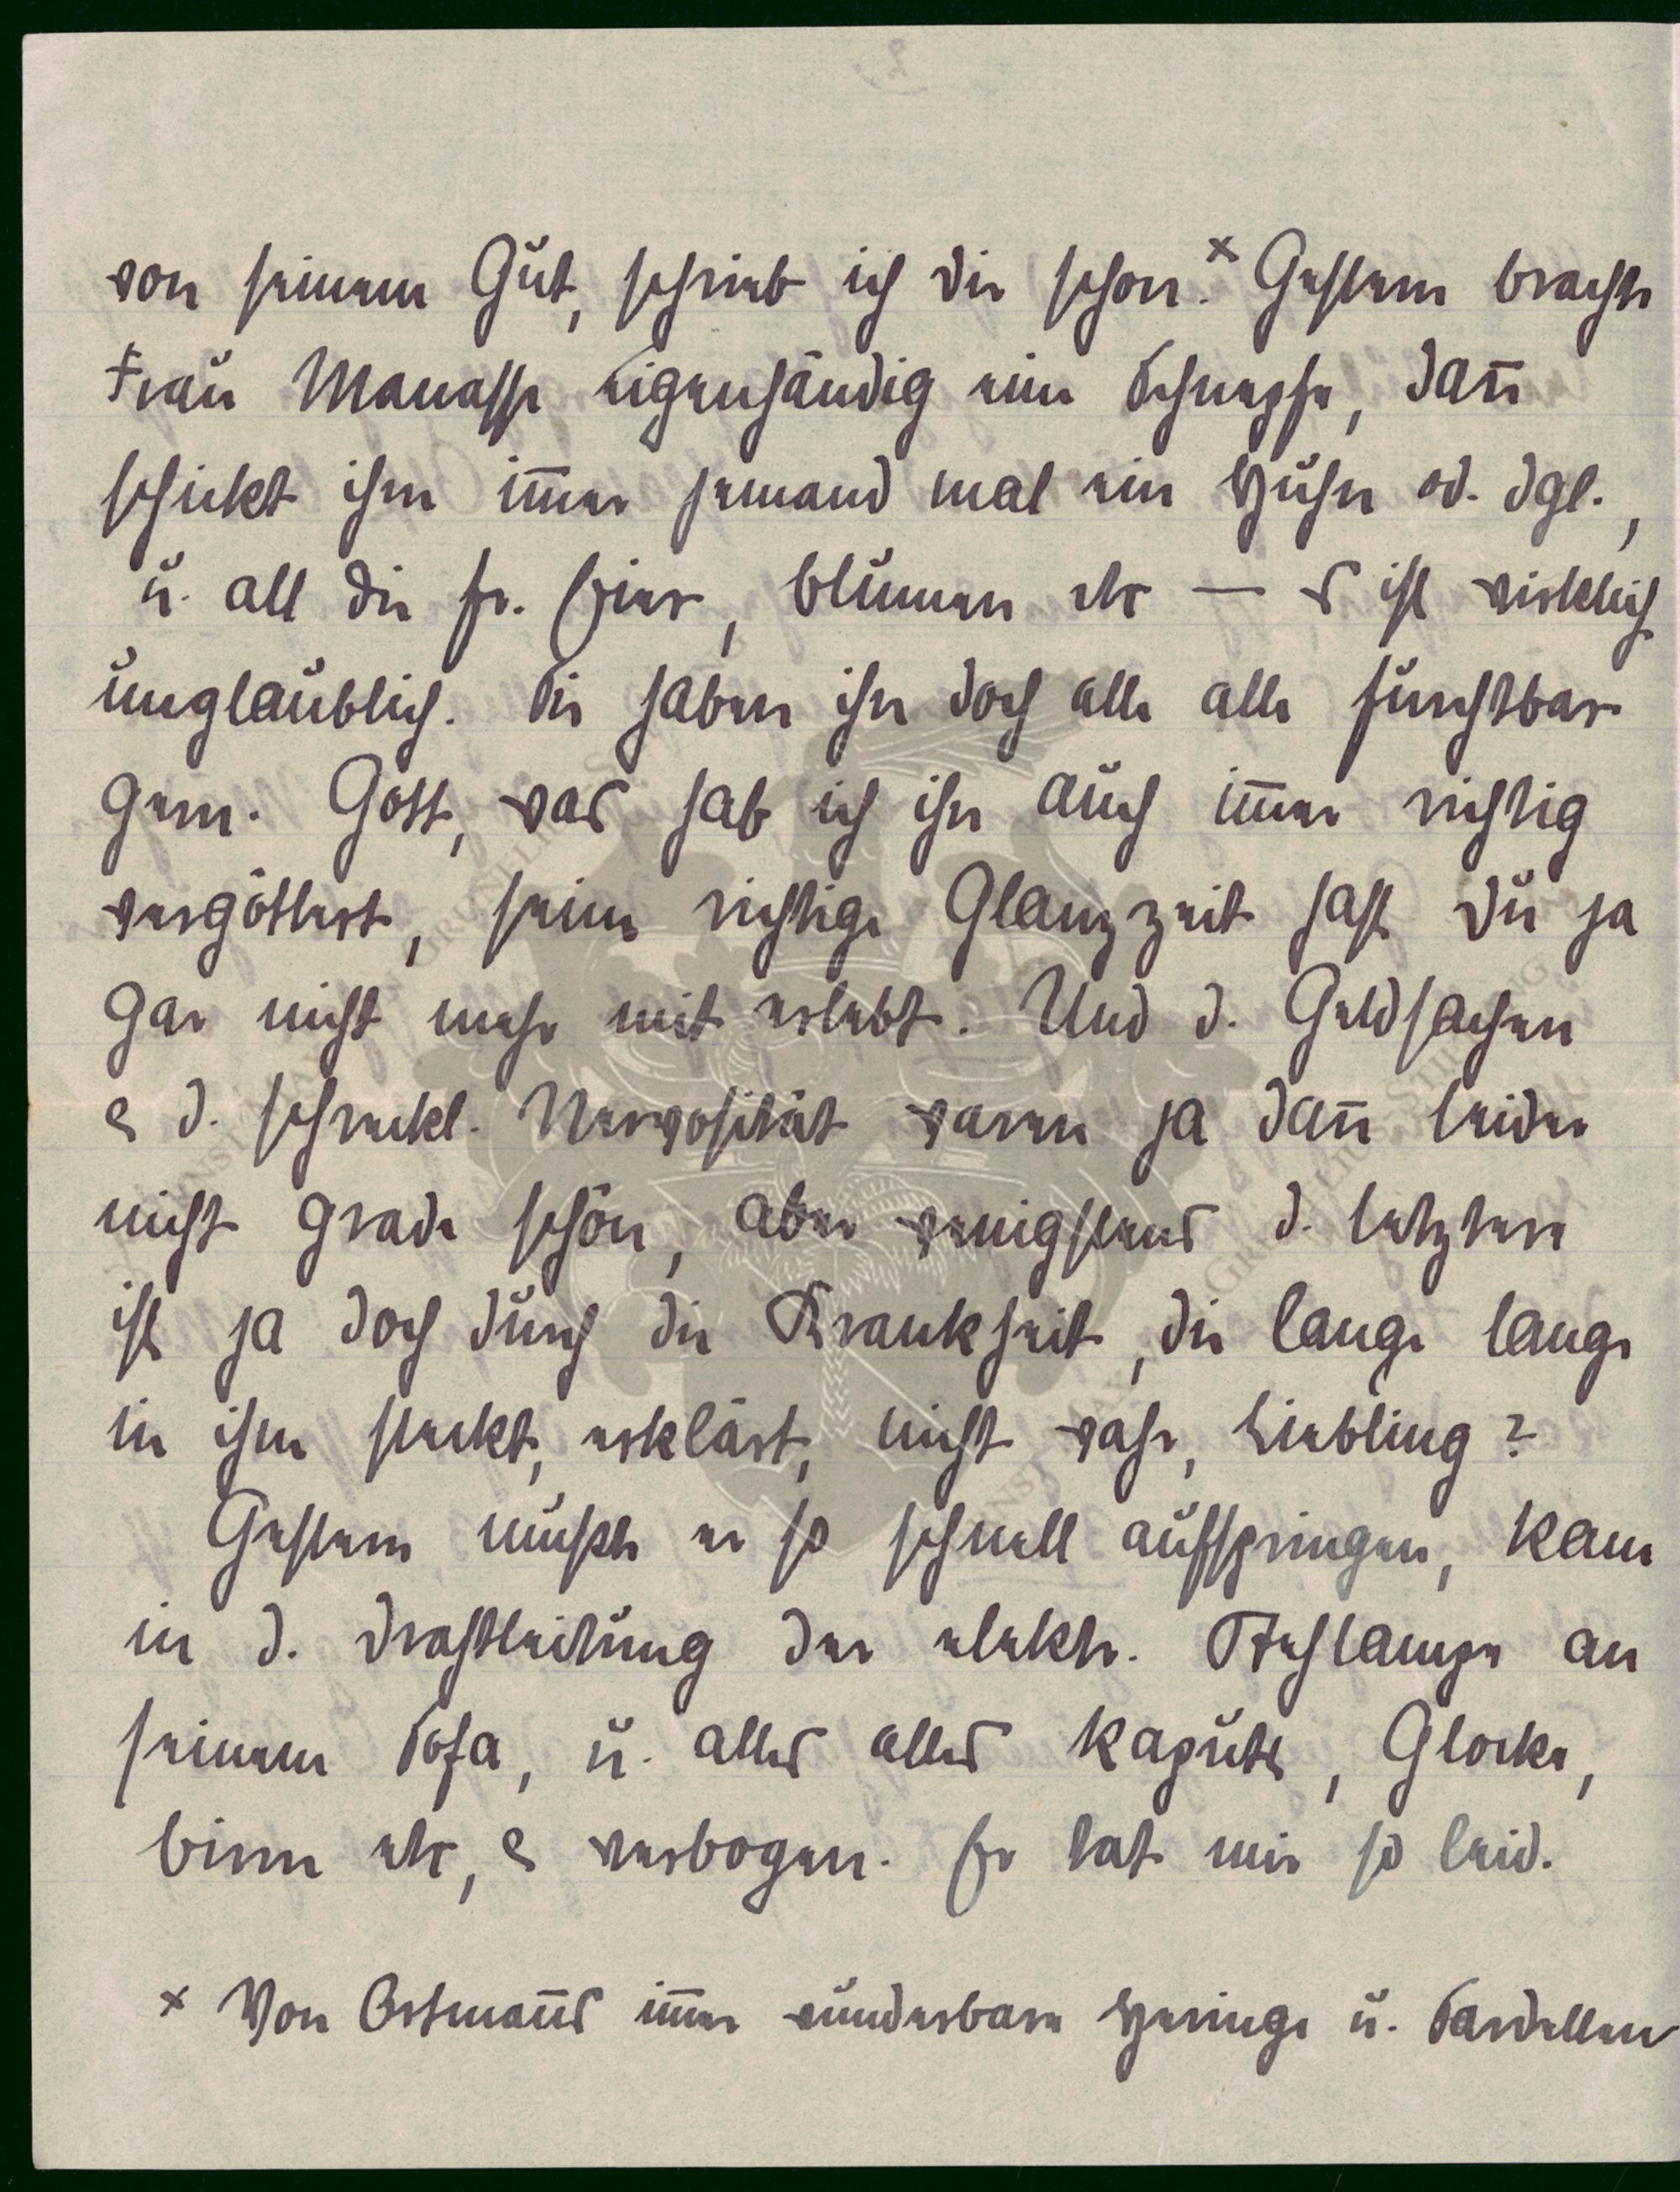 von seinem Gut, schrieb ich dir schon.× Gestern brachte
Frau Manasse eigenhändig eine Schnepfe, dan̄
schickt ihm im̄er jemand mal ein Huhn od. dgl.,
u. all die fr. Eier, Blumen etc — es ist wirklich
unglaublich. Sie haben ihn doch alle alle furchtbar
gern. Gott, was hab ich ihn auch im̄er richtig
vergöttert, seine richtige Glanzzeit hast du ja
gar nicht mehr mit erlebt. Und d. Geldsachen
& d. schreckl. Nervosität waren ja dan̄ leider
nicht grade schön, aber wenigstens d. letztere
ist ja doch durch die Krankheit, die lange lange
in ihm steckt, erklärt, nicht wahr, Liebling?
Gestern mußte er so schnell aufspringen, kam
in d. Drahtleitung der elektr. Stehlampe an
seinem Sofa, u. alles alles kaputt, Glocke,
Birne etc, & verbogen. Er tat mir so leid.
× Von Ostman̄s im̄er wunderbare Heringe u. Sardellen